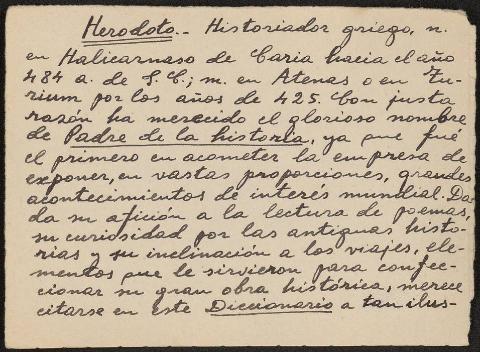 Herodoto.- Historiador griego, n.
en Halicarnaso de Caria hacia el año
484 a. de J. C.; m. en Atenas o en Tu-
rium por los años de 425. Con justa
razón ha merecido el glorioso nombre
de Padre de la historia, ya que fué
el primero en acometer la empresa de
exponer, en vastas proporciones, grandes
acontecimientos de interés mundial. Da-
da su afición a la lectura de poemas,
su curiosidad por las antiguas histo-
rias y su inclinación a los viajes, ele-
mentos que le sirvieron para confec-
cionar su gran obra histórica, merece
citarse en este Diccionario a tan ilus-